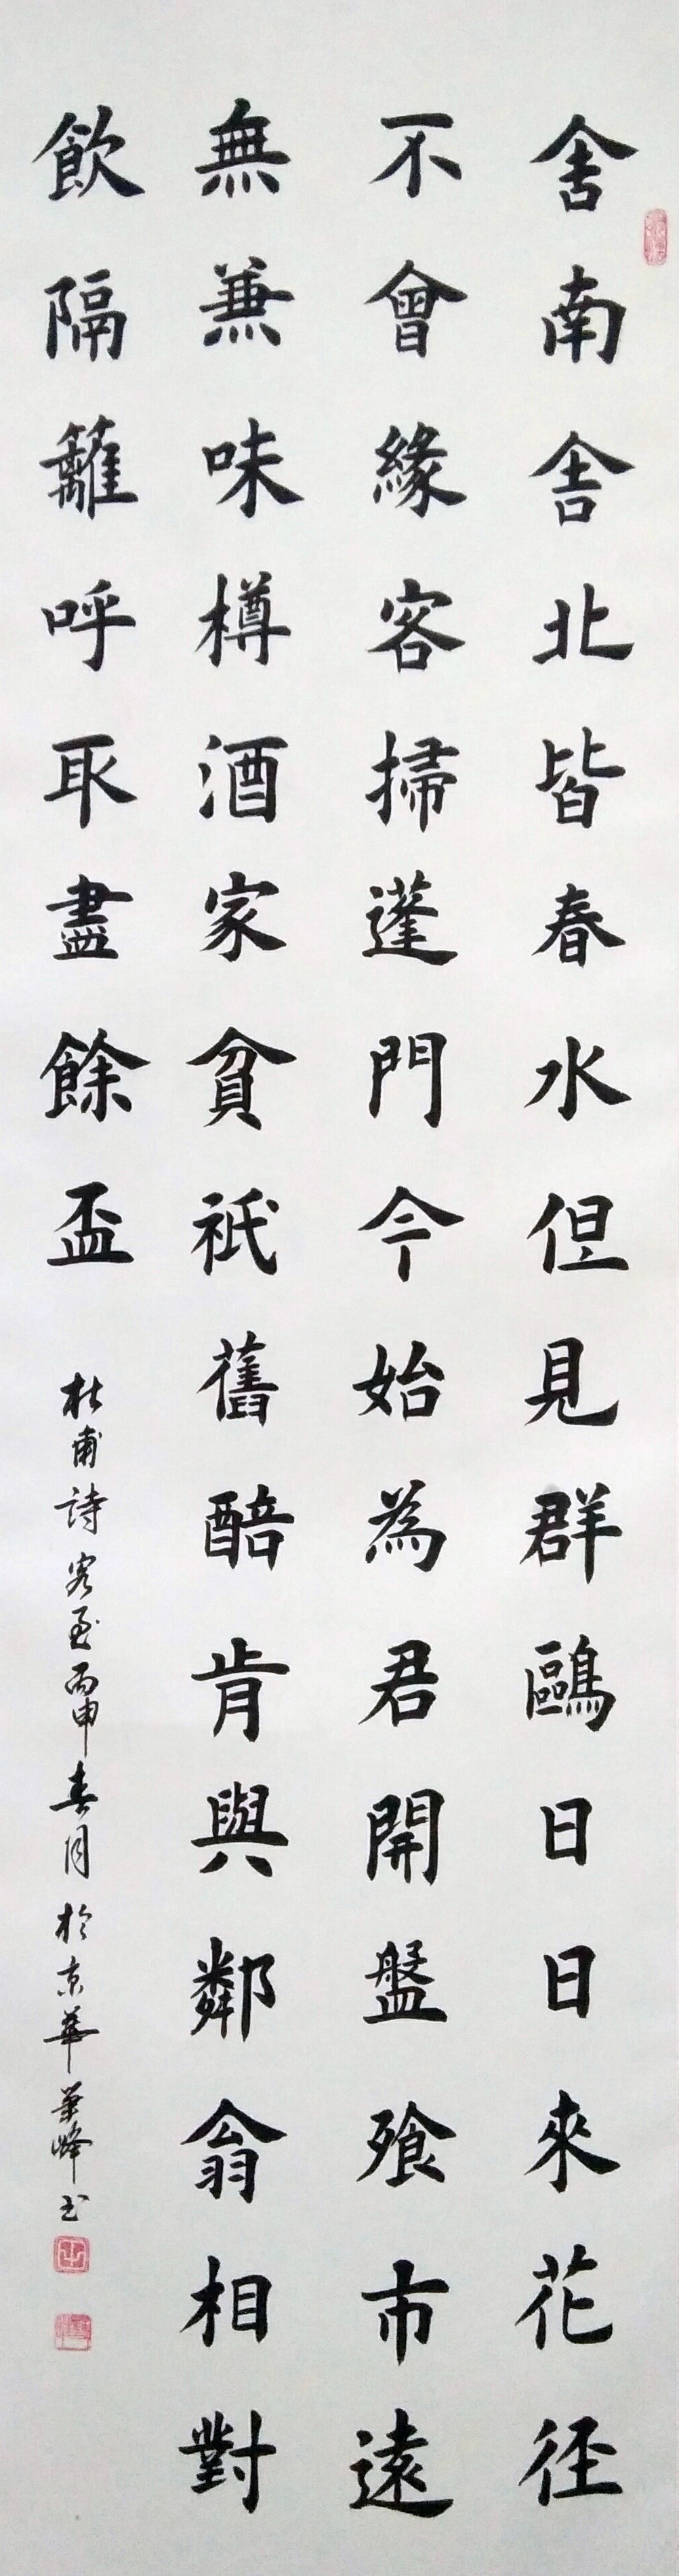 舎南舎北皆春水但見群鷗日日來花径
不曾緣客掃蓬門今始為君開盤飱市遠
無兼味樽酒家貧祇舊醅肯與鄰翁相對
飲隔籬呼取盡餘盃
杜甫詩客至丙申春月於京華華峰书